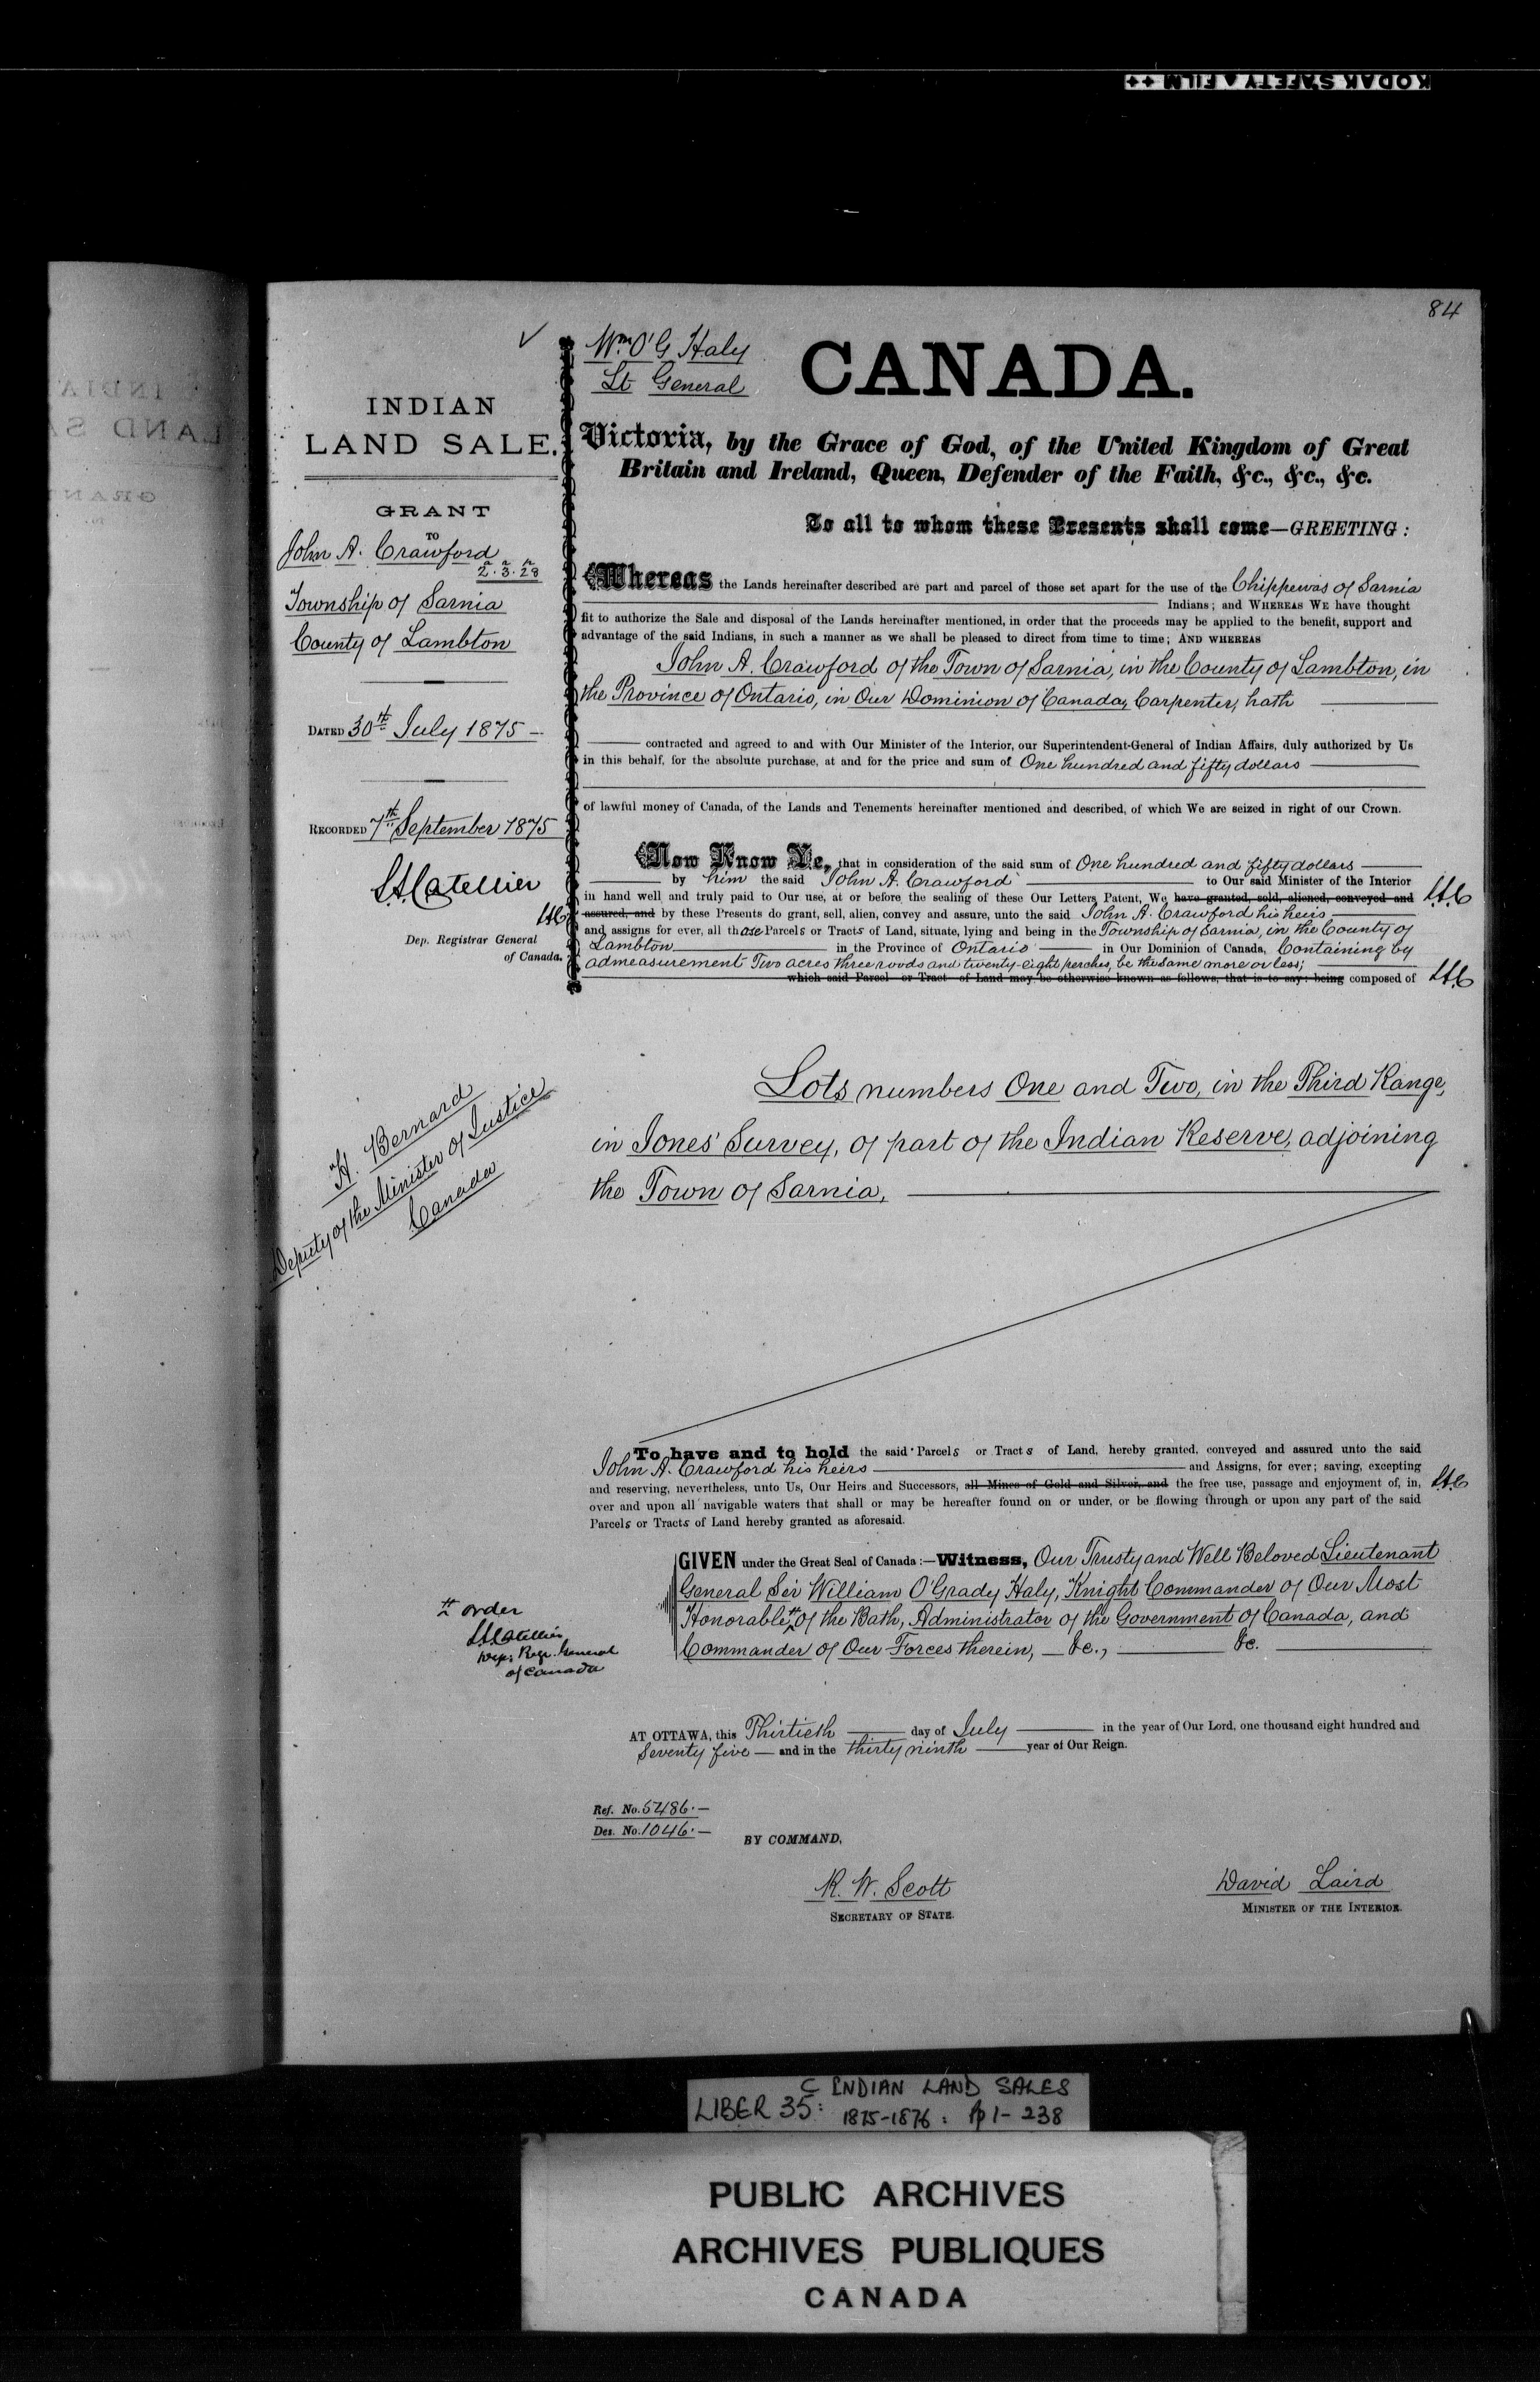 KODAK SAFETY FILM
84
✓
INDIAN
LAND SALE.
GRANT
TO
John A. Crawford
a r p
2.3.28
Township of Sarnia
County of Lambton
DATED 30th July 1875
RECORDED 7th September 1875
L.A. Catellier
LAC
Dep. Registrar General
of Canada.
H. Bernard
Deputy of the Minister of Justice
Canada
Wm O'G Haly
Lt General
CANADA.
Victoria, by the Grace of God, of the United Kingdom of Great
Britain and Ireland, Queen, Defender of the Faith, &c., &c., &c.
To all to whom these Presents shall come—GREETING:
Whereas the Lands hereinafter described are part and parcel of those set apart for the use of the Chippewas of Sarnia
Indians; and WHEREAS WE have thought
fit to authorize the Sale and disposal of the Lands hereinafter mentioned, in order that the proceeds may be applied to the benefit, support and
advantage of the said Indians, in such a manner as we shall be pleased to direct from time to time; AND WHEREAS
John A. Crawford of the Town of Sarnia, in the County of Lambton, in
the Province of Ontario, in Our Dominion of Canada, Carpenter, hath
contracted and agreed to and with Our Minister of the Interior, our Superintendent-General of Indian Affairs, duly authorized by Us
in this behalf, for the absolute purchase, at and for the price and sum of One hundred and fifty dollars
of lawful money of Canada, of the Lands and Tenements hereinafter mentioned and described, of which We are seized in right of our Crown.
Now Know Ye, that in consideration of the said sum of One hundred and fifty dollars
by him the said John A. Crawford to Our said Minister of the Interior
in hand well and truly paid to Our use, at or before the sealing of these Our Letters Patent, We have granted, sold, aliened, conveyed and LAC
assured, and by these Presents do grant, sell, alien, convey and assure, unto the said John A. Crawford his heirs
and assigns for ever, all those Parcels or Tracts of Land, situate, lying and being in the Township of Sarnia, in the County of
Lambton in the Province of Ontario in Our Dominion of Canada, Containing by
admeasurement Two acres three roods and twenty-eight perches, be the same more or less;
which said Parcel or Tract of Land may be otherwise known as follows, that is to say: being composed of LAC
Lots numbers One and Two, in the Third Range,
in Jones' Survey, of part of the Indian Reserve, adjoining
the Town of Sarnia,
To have and to hold the said Parcels or Tracts of Land, hereby granted, conveyed and assured unto the said
John A. Crawford his heirs and Assigns, for ever; saving, excepting
and reserving, nevertheless, unto Us, Our Heirs and Successors, all Mines of Gold and Silver, and the free use, passage and enjoyment of, in, LAC
over and upon all navigable waters that shall or may be hereafter found on or under, or be flowing through or upon any part of the said
Parcels or Tracts of Land hereby granted as aforesaid.
GIVEN under the Great Seal of Canada:—Witness, Our Trusty and Well Beloved Lieutenant
General Sir William O'Grady Haly, Knight Commander of Our Most
Honorable # of the Bath, Administrator of the Government of Canada, and
Commander of Our Forces therein, — &c., &c.
# order
L.A. Catellier
Dep. Regr. General
of Canada
AT OTTAWA, this Thirtieth day of July in the year of Our Lord, one thousand eight hundred and
Seventy five — and in the thirty ninth year of Our Reign.
Ref. No. 5486.—
Des. No. 1046.—
BY COMMAND,
R. W. Scott
SECRETARY OF STATE.
David Laird
MINISTER OF THE INTERIOR.
C INDIAN LAND SALES
LIBER 35: 1875-1876: pp 1-238
PUBLIC ARCHIVES
ARCHIVES PUBLIQUES
CANADA